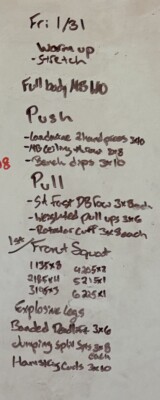 Fri 1/31
Warm up
- Stretch
Full body MB
Push
- Landmine 2 hand press 3x10
- MB Ceiling throw 3x8
- Bench dips 3x10
Pull
- St Fast DB Row 3x8each
- Weighted pull ups 3x6
- Rotator Cuff 3x8each
1st/Front Squat
1 135x8 4 205x2
2 185x4 5 215x1
6 225x1
Explosive legs
Banded Deadlift 3x6
Jumping Split Sqts 3x8
each
Hamstring Curls 3x10